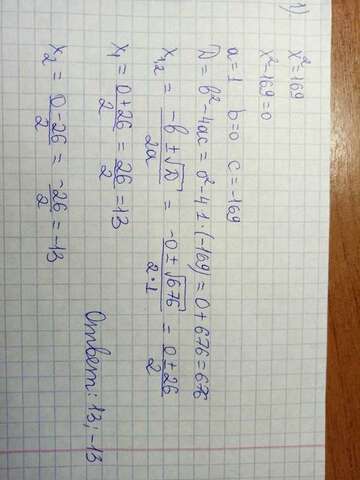 1)
x²=169
x²-169=0
a=1 b=0 c=-169
D = b²-4ac = 0²-4·1·(-169) = 0+676=676
x₁,₂ = -b±√D/2a = -0±√676/2·1 = 0±26/2
x₁ = 0+26/2 = 26/2 = 13
x₂ = 0-26/2 = -26/2 = -13
Ответ: 13; -13